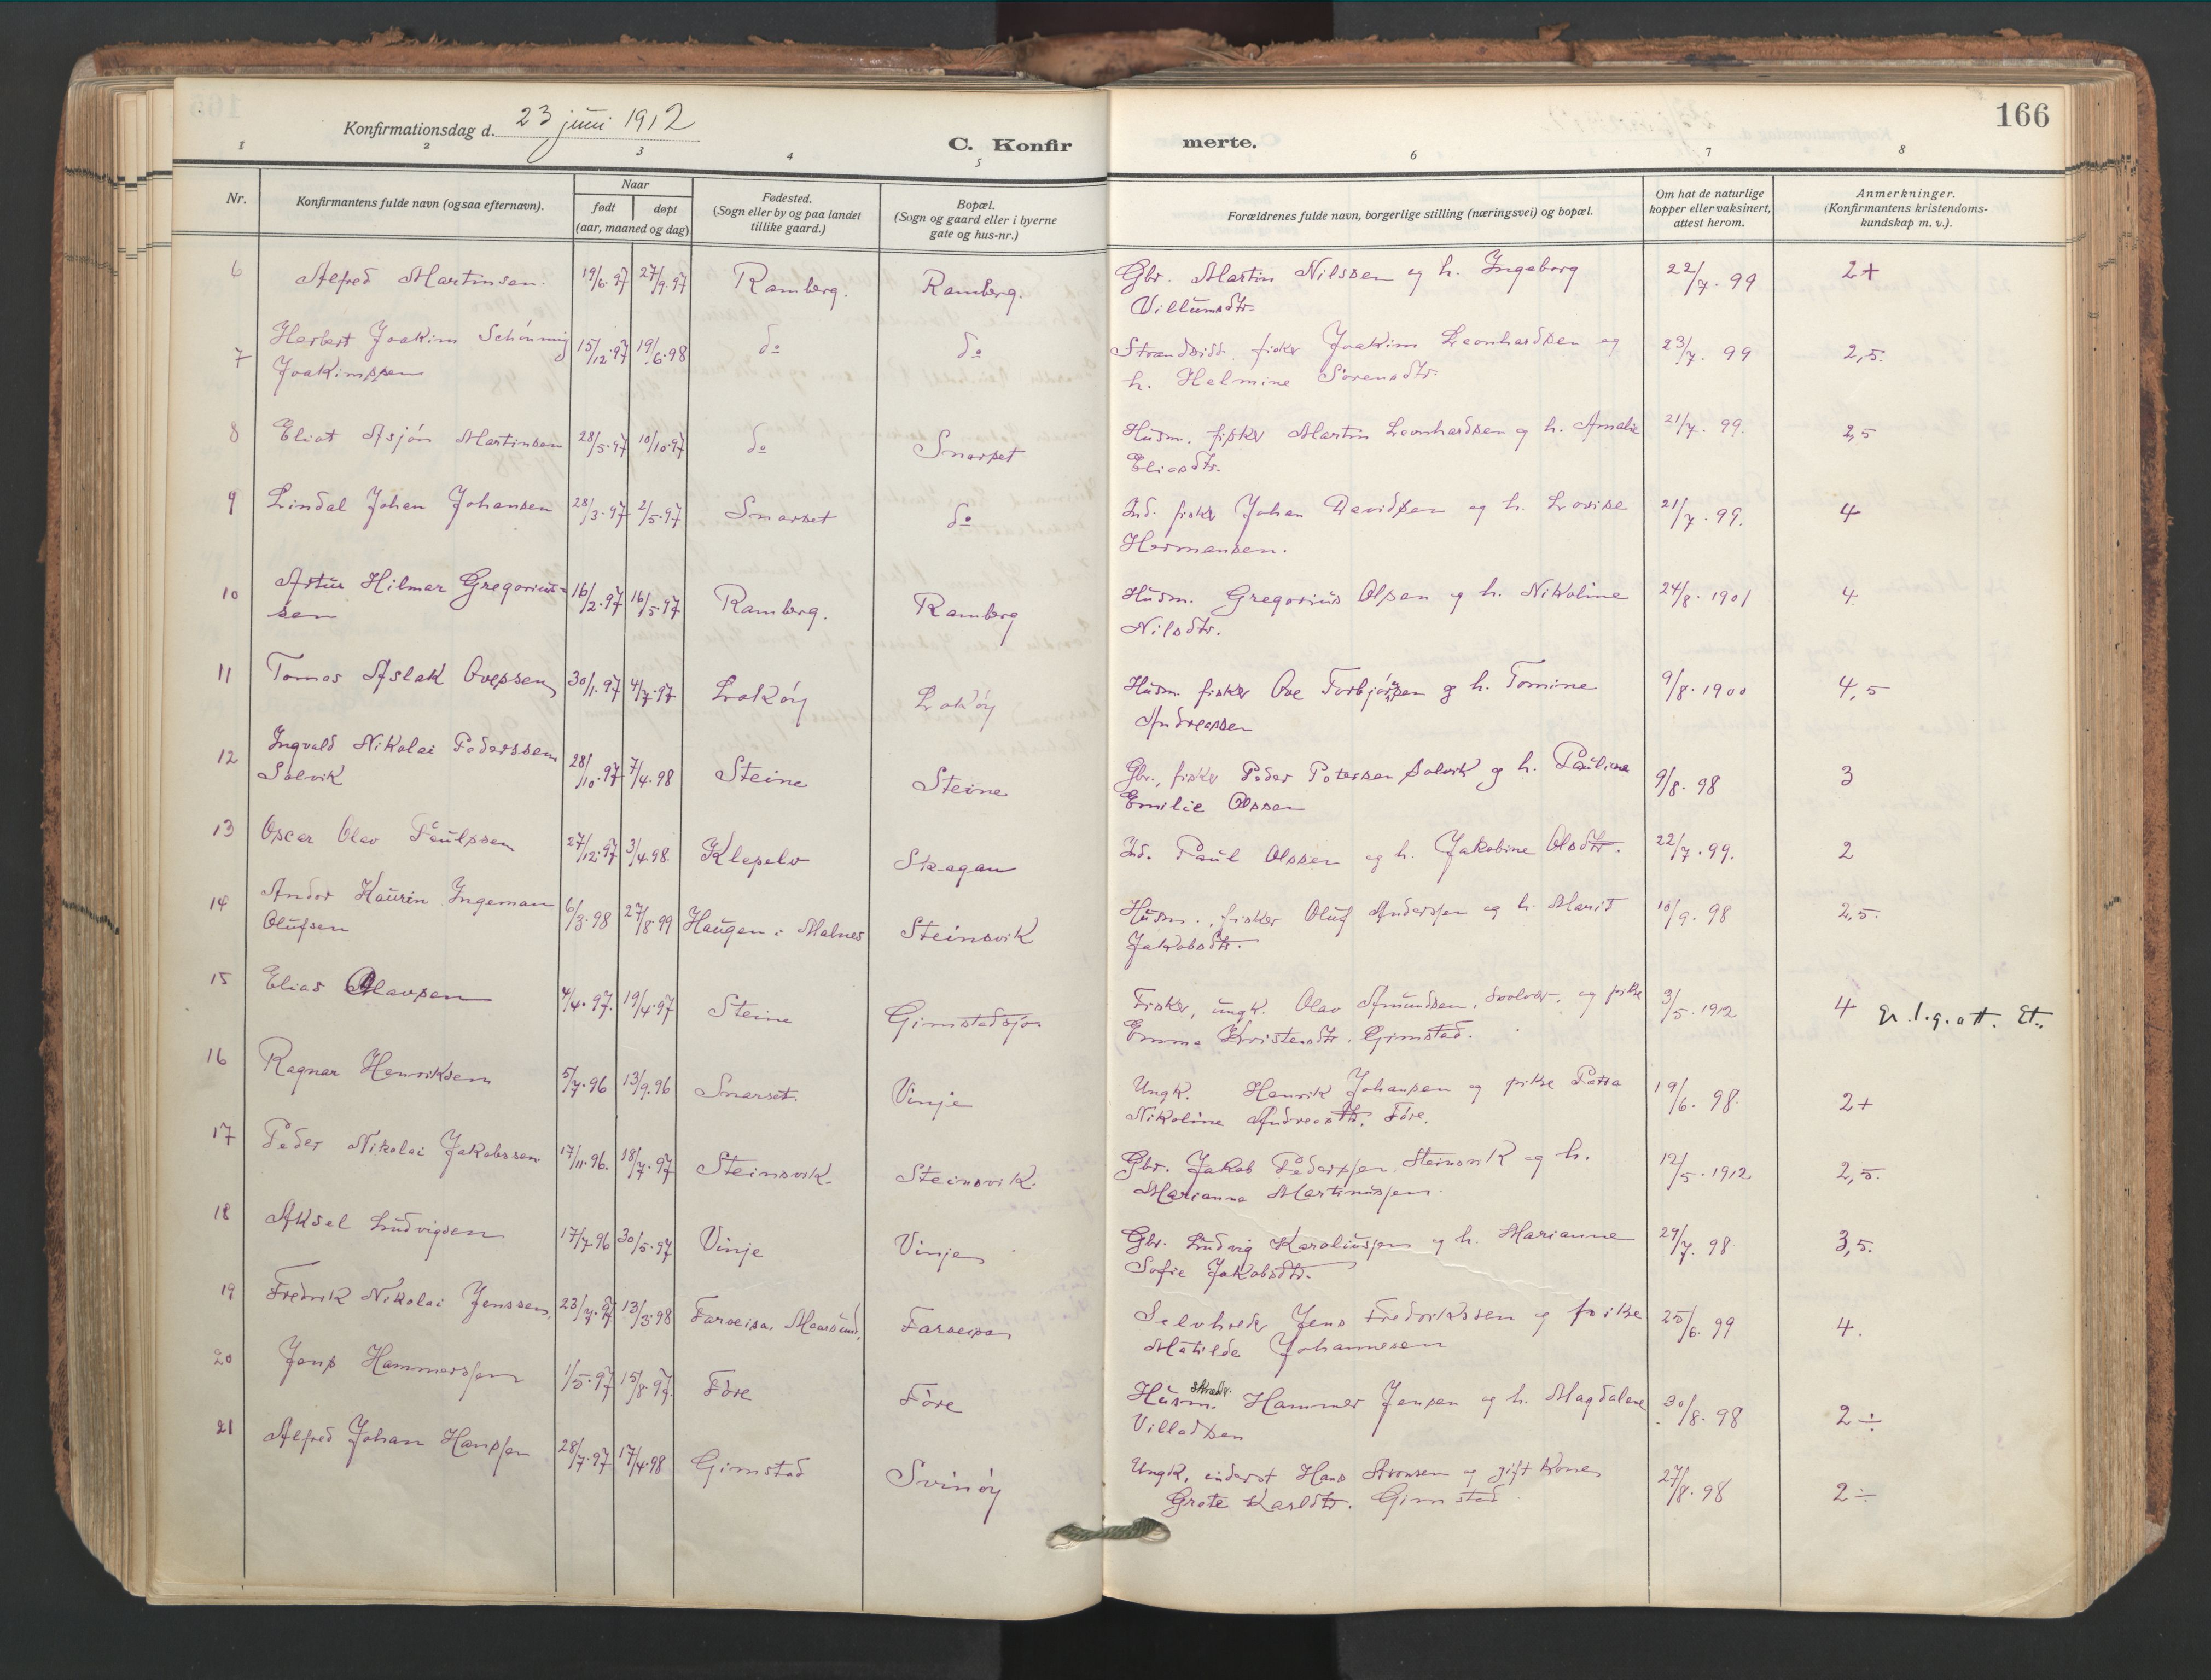 166
Konfirmationsdag d. 23 juni 1912
C. Konfir merte.
1 2 3 4 5 6 7 8
Nr.
Konfirmantens fulde navn (ogsaa efternavn).
Naar
født døpt
(aar, maaned og dag)
Fødested.
(Sogn eller by og paa landet
tillike gaard.)
Bopæl.
(Sogn og gaard eller i byerne
gate og hus-nr.)
Forældrenes fulde navn, borgerlige stilling (næringsvei) og bopæl.
Om hat de naturlige
kopper eller vaksinert,
attest herom.
Anmerkninger.
(Konfirmantens kristendoms-
kundskap m. v.).
6 Alfred Martinsen. 19/6.97 27/9.97 Ramberg. Ramberg. Gbr. Martin Nilssen og h. Ingeborg 22/7.99 2+
Villumsdtr.
7 Herbert Joakim Schönning 15/12.97 19/6.98 do do Strandsidd. fisker Joakim Leonhardsen og 23/7.99 2,5.
Joakimssen h. Helmine Sörensdtr.
8 Eliot Asjön Martinsen 28/5.97 10/10.97 do Snarset Husm. fisker Martin Leonhardsen og h. Amalie 21/7.99. 2,5
Eliasdtr.
9 Lindal Johan Johansen 28/3.97 2/5.97 Snarset do Ind. fisker Johan Davidsen og h. Lovise 21/7.99. 4
Hermansen.
10 Artur Hilmar Gregorius- 16/2.97 16/5.97 Ramberg. Ramberg Husm. Gregorius Olsen og h. Nikoline 24/8.1901 4.
sen Nilsdtr.
11 Tomas Aslak Ovessen 30/1.97 4/7.97 Laköy Laköy Husm. fisker Ove Torbjörnsen og h. Tomine 9/8.1900 4,5
Andreassen
12 Ingvald Nikolai Pederssen 28/10.97 7/4.98 Steine Steine Gbr., fisker Peder Petersen Solvik og h. Pauline 9/8.98 3
Solvik Emilie Olssen
13 Oscar Olav Paulssen 27/12.97 3/4.98. Klepelv Ind. Paul Olssen og h. Jakobine Olsdtr. 22/7.99. 2
14 Andor Kaurin Ingeman 6/3.98 27/8.99 Haugen i Malnes Steinsvik Husm., fisker Oluf Anderssen og h. Marit 10/9.98 2,5.
Olufsen Jakobsdtr.
15 Elias Olavsen 4/4.97. 19/4.97 Steine Gimstadsjö Fisker, ungk. Olav Amundsen, Svolvær, og pike 3/5.1912 4
Emma Kristensdtr. Gimstad.
16 Ragnar Henriksen 5/7.96 13/9.96 Snarset. Vinje Ungk. Henrik Johansen og pike Petra 19/6.98. 2+
Nikoline Andreasdtr, Före.
17 Peder Nikolai Jakobssen 17/11.96. 18/7.97 Steinsvik. Steinsvik. Gbr. Jakob Pederssen, Steinsvik og h. 12/5.1912 2,5.
Marianna Martinussen.
18 Aksel Ludvigsen 17/7.96 30/5.97 Vinje Vinje Gbr. Ludvig Karoliussen og h. Marianne 29/7.98 3,5.
Sofie Jakobsdtr.
19 Fredrik Nikolai Jenssen, 23/7.97 13/3.98 Jens Fredrikssen og pike 25/6.99 4.
Matilde Johannesen
20 Jens Hammerssen 1/5.97 15/8.97. Före Före Husm. Hammer Jensen og h. Magdalene 30/8.98 2÷
Villadsen
21 Alfred Johan Hanssen 28/7.97 17/4.98 Gimstad Svinöy Ungk. inderst Hans og gift kone 27/8.98 2÷
Grete Karlsdtr. Gimstad